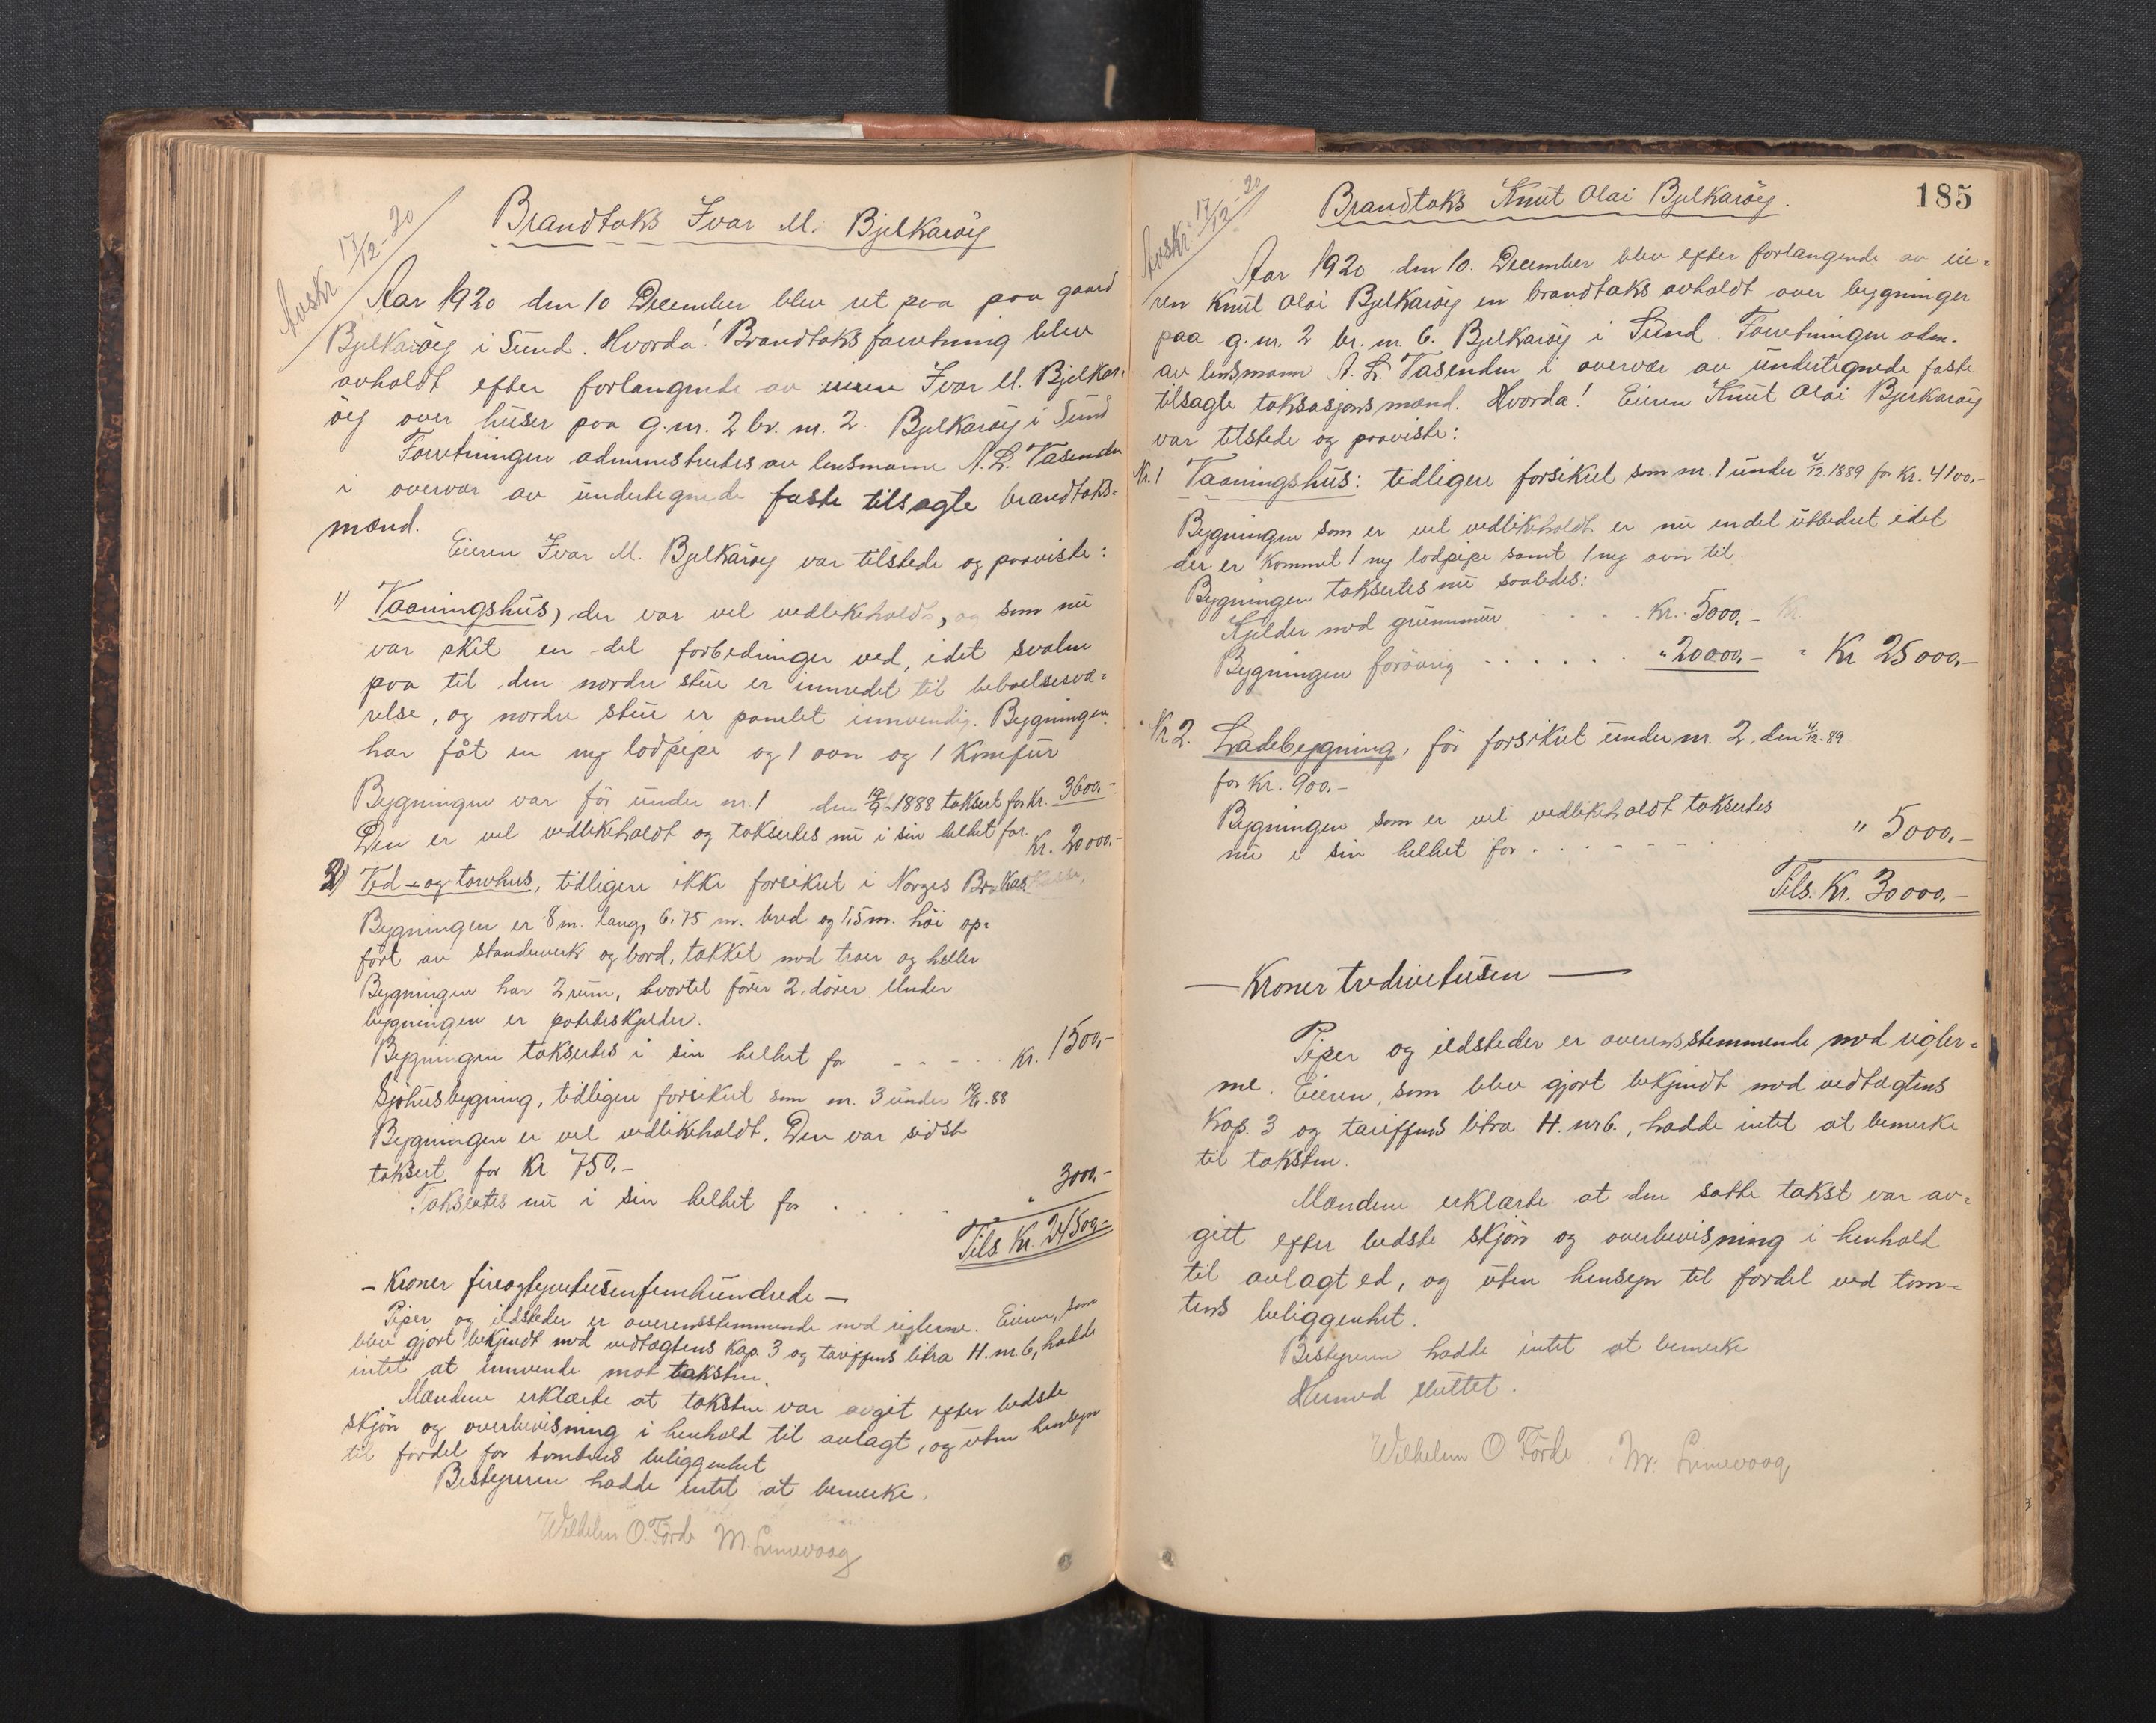 Avskr. 17/12-20
Brandtaks Ivar M. Bjelkarøy
Aar 1920 den 10 December blev ret paa paa gaard
Bjelkarøy i Sund. Hvorda! Brandtaksforretning blev
avholdt efter forlangende av eieren Ivar M. Bjelkar-
øy over huser paa g.nr. 2 br. nr. 2. Bjelkarøy i Sund
Forretningen administrertes av lensmann A. L. Vasenden
i overvær av undertegnede faste tilsagte brandtaks-
mænd.
Eieren Ivar M. Bjelkarøy var tilstede og paaviste:
1) Vaaningshus, der var vel vedlikeholdt, og som nu
var sket en del forbedringer ved, idet svalen
paa til den nordre stue er innredet til beboelsesvæ-
relse, og nordre stue er panelet innvendig. Bygningen
har fåt en ny lodpipe og 1 ovn og 1 komfur
Bygningen var før under nr. 1 den 19/9 1888 taksert for Kr. 3600,-
Den er vel vedlikeholdt og taksertes nu i sin helhet for Kr. 20000.-
2) Ved- og torvhus, tidligere ikke forsikret i Norges Br.kasse,
Bygningen er 8 m. lang, 6.75 m. bred og 1,5 m. høi op-
ført av standerverk og bord, takket med træer og heller
Bygningen har 2 rum, hvortil fører 2 dører. Under
bygningen er poteteskjelder.
Bygningen taksertes i sin helhet for - - - - Kr. 1500,-
Sjøhusbygning, tidligere forsikret som nr. 3 under 19/9.88
Bygningen er vel vedlikeholdt. Den var sidst
taksert for Kr 750,-
Taksertes nu i sin helhet for . . . . " 3000,-
Tils Kr. 24500,-
- Kroner fireogtyvetusenfemhundrede -
Piper og ildsteder er overensstemmende med reglerne. Eieren, som
blev gjort bekjendt med vedtægtens Kap. 3 og tariffens litra H. nr. 6, hadde
intet at innvende mot taksten.
Mændene erklærte at taksten var avgit efter bedste
skjøn og overbevisning i henhold til avlagt, og uten hensyn
til fordel for tomtens beliggenhet
Bestyreren hadde intet at bemerke.
Wilhelm O. Førde M. Linnevaag
185
Avskr. 17/12-20
Brandtaks Knut Olai Bjelkarøy.
Aar 1920 den 10. December blev efter forlangende av eie-
ren Knut Olai Bjelkarøy en brandtaks avholdt over bygninger
paa g.nr. 2 br. nr 6. Bjelkarøy i Sund. Forretningen adm.
av lensmann A. L. Vasenden i overvær av undertegnede faste
tilsagte taksasjonsmænd. Hvorda! Eieren Knut Olai Bjerkarøy
var tilstede og paaviste:
Nr. 1 Vaaningshus: tidligere forsikret som nr. 1 under 4/12. 1889 for Kr. 4100,-
Bygningen som er vel vedlikeholdt er nu endel utbedret idet
der er kommet 1 ny lodpipe samt 1 ny ovn til.
Bygningen taksertes nu saaledes:
Kjelder med grunnmur . . . . Kr. 5000,-
Bygningen forøvrig . . . . . . " 20000,- = Kr 25000,-
Nr 2. Ladebygning, før forsikret under nr. 2. den 4/12-89
for Kr. 900.-
Bygningen som er vel vedlikeholdt taksertes
nu i sin helhet for . . . - - - " 5000,-
Tils. Kr. 30000,-
— Kroner tredivetusen —
Piper og ildsteder er overensstemmende med regler-
ne. Eieren, som blev gjort bekjendt med vedtægtens
Kap. 3 og tariffens litra H. nr 6., hadde intet at bemerke
til taksten.
Mændene erklærte at den satte takst var av-
gitt efter bedste skjøn og overbevisning i henhold
til avlagt ed, og uten hensyn til fordel ved tom-
tens beliggenhet.
Bestyreren hadde intet at bemerke
Hermed sluttet.
Wilhelm O Førde. M. Linnevaag